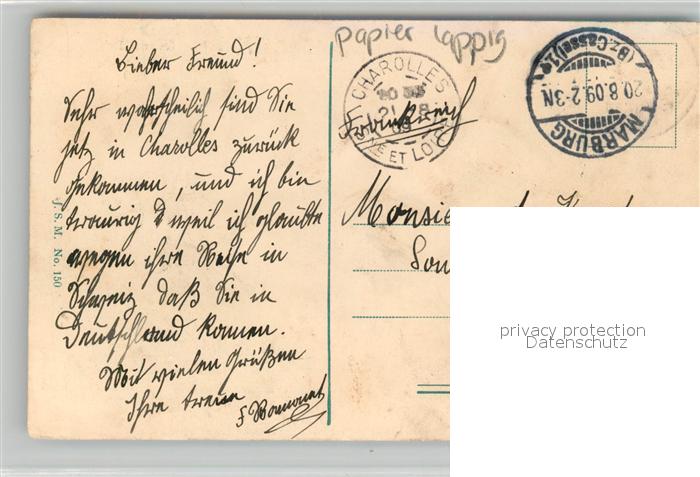 Papier lappig
Lieber Freund!
Sehr wahrscheilich sind Sie
jetz in Charolles zurück
gekommen, und ich bin
traurig weil ich glaubte
wegen ihre Reise in
Schweiz daß Sie in
Deutschland kommen.
Mit vielen Grüßen
Ihre treue
J. S. M. No. 150
CHAROLLES
21 8
09
SNE ET LOIRE
Frankreich
MARBURG
20.8.09.2-3N
(Bz. Cassel) 1
Monsie
privacy protection
Datenschutz